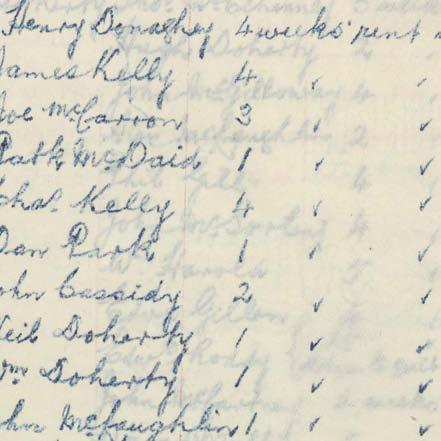 Henry Donaghey 4 weeks' rent
James Kelly 4 ✓ ✓
Joe McCarron 3 ✓ ✓
Patk McDaid 1 ✓ ✓
Chas. Kelly 4 ✓ ✓
Dan Park 1 ✓ ✓
John Cassidy 2 ✓ ✓
Neil Doherty 1 ✓ ✓
Wm Doherty 1 ✓ ✓
John McLaughlin 1 ✓ ✓